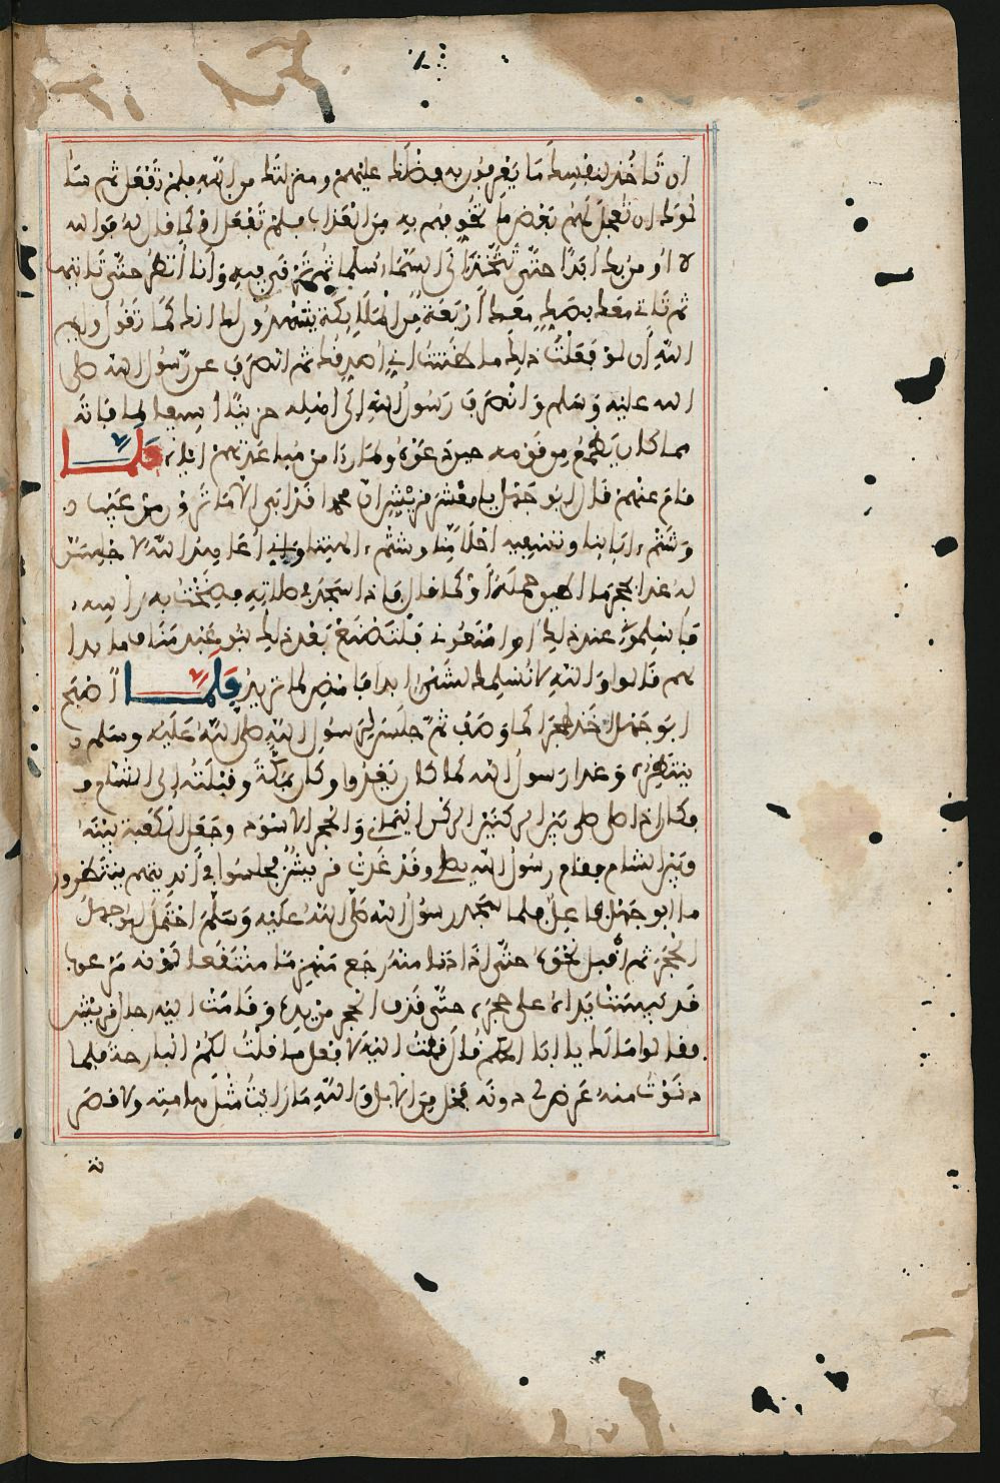 ان تاخذ لنفسك ما يعرفون به فضلك عليهم ومنزلتك من الله فلم تفعل ثم سئا
لوك ان تعجل لهم بعض ما تخوفهم به من العذاب فلم تفعل او كما قال له فوالله
لا اومن بك ابدا حتى تتخذ الى السماء سلما ثم ترقى فيه وانا انظر حتى تاتيها
ثم تاتي معك بصك معك اربعة من الملائكة يشهدون لك انك كما تقول وايم
الله ان لو فعلت ذلك ما ظننت اني اصدقك ثم انصرف عن رسول الله صلى
الله عليه وسلم وانصرف رسول الله الى اهله حزينا اسفا لما فاته
مما كان يطمع من قومه حين دعوه ولما راى من مباعدتهم اياه فلما
قام عنهم قال ابو جهل يا معشر قريش ان محمدا قد ابى الا ما ترون من عيب د
وشتم ابائنا وتسفيه احلامنا وشتم الهتنا واني اعاهد الله لا جلسن
له غدا بحجر ما اطيق حمله او كما قال فاذا سجد في صلاته فضخت به راسه
فاسلموني عند ذلك او امنعوني فلتصنع بعد ذلك بنو عبد مناف ما بدا
لهم قالوا والله لا نسلمك لشيء ابدا فامض لما تريد فلما اصبح
ابو جهل اخذ حجرا كما وصف ثم جلس لرسول الله صلى الله عليه وسلم د
ينتظره وغدا رسول الله كما كان يغدوا وكان بمكة وقبلته الى الشام و
فكان اذا صلى صلى بين الركنين الركن اليماني والحجر الاسود وجعل الكعبة بينه
وبين الشام فقام رسول الله يصلي وقد غدت قريش فجلسوا في انديتهم ينتظرون
ما ابو جهل فاعل فلما سجد رسول الله صلى الله عليه وسلم احتمل ابو جهل
الحجر ثم اقبل نحوه حتى اذا دنا منه رجع منهزما منتقعا لونه مرعوبا
قد يبست يداه على حجره حتى قذف الحجر من يده وقامت اليه رجال قريش
فقالوا مالك يا ابا الحكم قال قمت اليه لافعل ما قلت لكم البارحة فلما
دنوت منه عرض لي دونه فحل من الابل والله ما رايت مثل هامته ولا قصر